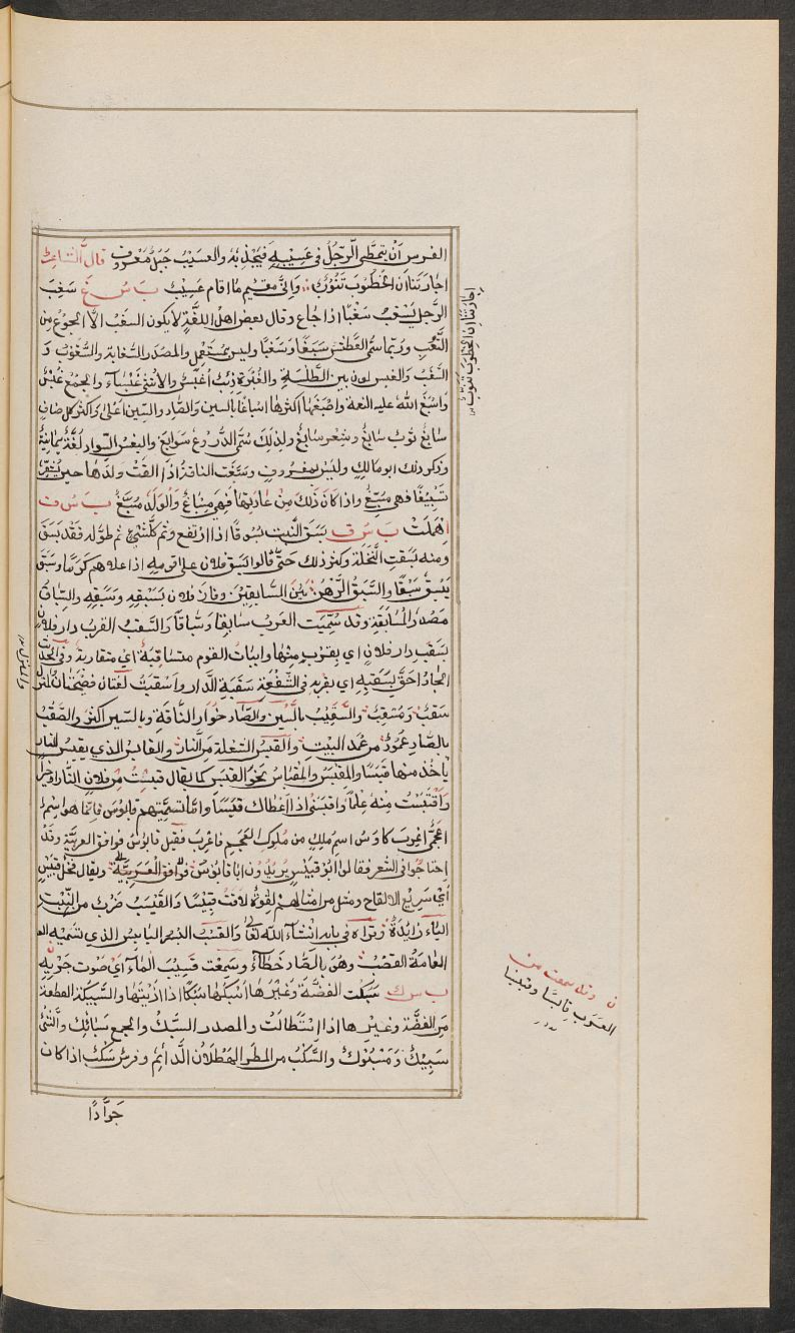 الفرس ان يتمطى الرجل فى عسيبه فيجذبه والعسيب جبل معروف قال الشاعر
اجارتنا ان الخطوب تنوب واني مقيم ما اقام عسيب ب س غ سغب
الرجل يسغب سغبا اذا جاع وقال بعض اهل اللغة لا يكون السغب الا الجوع مع
التعب وربما سمى العطش سغبا وليس بمستعمل والمصدر السغابة والسغوب و
السغب والغبس لون بين الطلسة والغبرة ذئب اغبس والانثى غبساء والجمع غبس
واسبغ الله عليه النعمة واصبغها اكثرها اسباغا بالسين والصاد والسين اعلى واكثر كل ضاف
سابغ ثوب سابغ وشعر سابغ ولذلك سمى الدروع سوابغ والبغس السواد لغة يمانية
وذكر ذلك ابو مالك وليس بمعروف وسبغت الناقة اذا القت ولدها حين يشعر
تسبيغا فهى مسبغ واذا كان ذلك من عادتها فهى مسباغ والولد مسبغ ب س ف
اهملت ب س ق بسق النبت بسوقا اذا ارتفع وتم كل شيئ تم طوله فقد بسق
ومنه بسقت النخلة وكثر ذلك حتى قالوا بسق فلان على قومه اذا علاهم كرما وسبق
يسبق سبقا والسبق الرهن بين السابقين وفاز فلان بسبقه وسبقه والسباق
مصدر المسابقة وقد سمت العرب سابقا وسباقا والسقب القرب دار فلان
بسقب دار فلان اي بقرب منها وابيات القوم متساقبة اي متقاربة وفى الحديث
الجار احق بسقبه اي بقربه فى الشفعة سقبة الدار واسقبت لغتان فصيحتان المنزل
سقب ومسقب والسقب بالسين والصاد حوار الناقة وبالسين اكثر والصقب
بالصاد عمود من عمد البيت والقبس الشعلة من النار والقابس الذي يقبس النار
يأخذ منها قبسا والمقبس والمقباس نحو القبس كما يقال قبست من فلان النار وخيرا
واقتبست منه علما واقبسنى اذا اعطاك قبسا واما تسميتهم قابوس فانما هو اسم
اعجمى اعرب كاوس اسم ملك من ملوك العجم فاعرب فقيل قابوس فوافق العربية وقد
احتاجوا فى الشعر فقالوا ابو قبيس يريدون ابا قابوس فوافق العربية ويقال فحل قبيس
اي سريع الالقاح ومثل من امثالهم لقوة لاقت قبيسا والقيسب ضرب من النبت
الياء زايدة وتراه فى بابه انشاء الله تعالى والقسب التمر اليابس الذي تسميه
العامة القصب وهو بالصاد خطأ وسمعت قسيب الماء اي صوت جريه
ب س ك سبكت الفضة وغيرها اسبكها سبكا اذا اذبتها والسبيكة القطعة
من الفضة وغيرها اذا استطالت والمصدر السبك والجمع سبائك والشئ
سبيك ومسبوك والسكب من المطر الهطلان الدائم وفرس سكب اذا كان
جوادا
اجارتنا ان الخطوب تنوب
وقد سمعت من
العرب قابسا وقبيسا